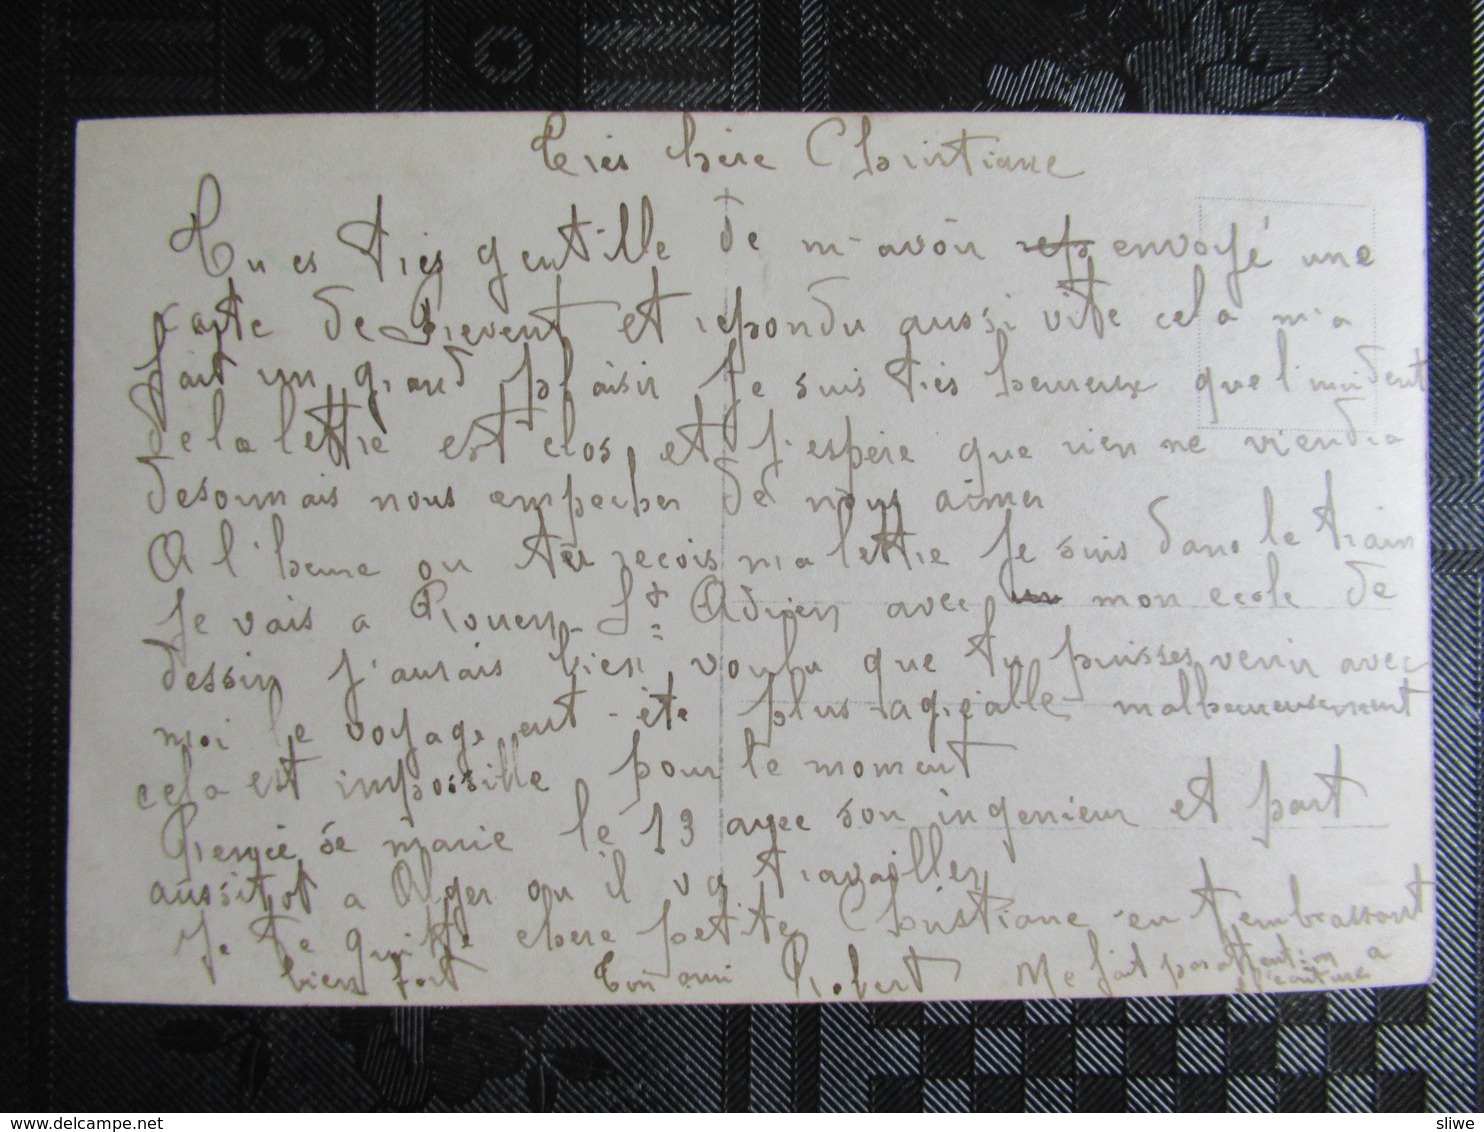 Très chère Christiane
Tu es très gentille de m'avoir envoyé une
carte de Prevent et repondu aussi vite cela m'a
fait un grand plaisir Je suis très heureux que l'insident
de la lettre est clos et j'espère que rien ne viendra
desormais nous empecher de nous aimer
A l'heure ou tu recois ma lettre Je suis dans le train
Je vais a Rouen St Adrien avec mon ecole de
dessin J'aurais bien voulu que tu puisses venir avec
moi le voyage eut été plus agréable malheureusement
cela est impossible pour le moment
se marie le 13 avec son ingenieur et part
aussitot a Alger ou il va travailler
Je te quitte chere petite Christiane en t'embrassant
bien fort Ton ami Robert Me fait pas attention a
l'écriture
delcampe.net
sliwe